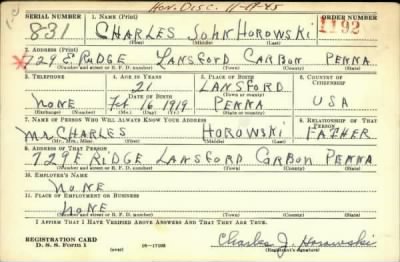 Hon. Disc. 11-17-45
SERIAL NUMBER 1. NAME (Print) ORDER NUMBER
831 CHARLES JOHN HOROWSKI 1192
(First) (Middle) (Last)
2. ADDRESS (Print)
729 E. RIDGE LANSFORD CARBON PENNA
(Number and street or R. F. D. number) (Town) (County) (State)
3. TELEPHONE 4. AGE IN YEARS 5. PLACE OF BIRTH 6. COUNTRY OF CITIZENSHIP
21 LANSFORD
DATE OF BIRTH (Town or county)
NONE Feb 16 1919 PENNA USA
(Exchange) (Number) (Mo.) (Day) (Yr.) (State or country)
7. NAME OF PERSON WHO WILL ALWAYS KNOW YOUR ADDRESS 8. RELATIONSHIP OF THAT PERSON
Mr. CHARLES HOROWSKI FATHER
(Mr., Mrs., Miss) (First) (Middle) (Last)
9. ADDRESS OF THAT PERSON
729 E RIDGE LANSFORD CARBON PENNA
(Number and street or R. F. D. number) (Town) (County) (State)
10. EMPLOYER'S NAME
NONE
11. PLACE OF EMPLOYMENT OR BUSINESS
NONE
(Number and street or R. F. D. number) (Town) (County) (State)
I AFFIRM THAT I HAVE VERIFIED ABOVE ANSWERS AND THAT THEY ARE TRUE.
REGISTRATION CARD
D. S. S. Form 1 (over) 16-17105 Charles J. Horowski
(Registrant's signature)